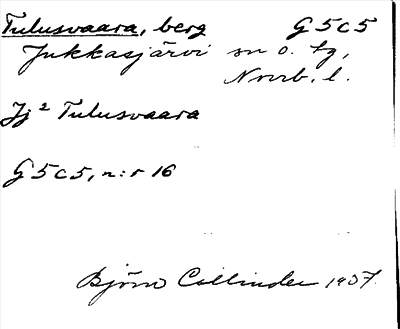 Tulusvaara, berg G5C5
Jukkasjärvi sn o. tg,
Norrb. l.
Jj² Tulusvaara
G5C5, n:r 16
Björn Collinder 1937.